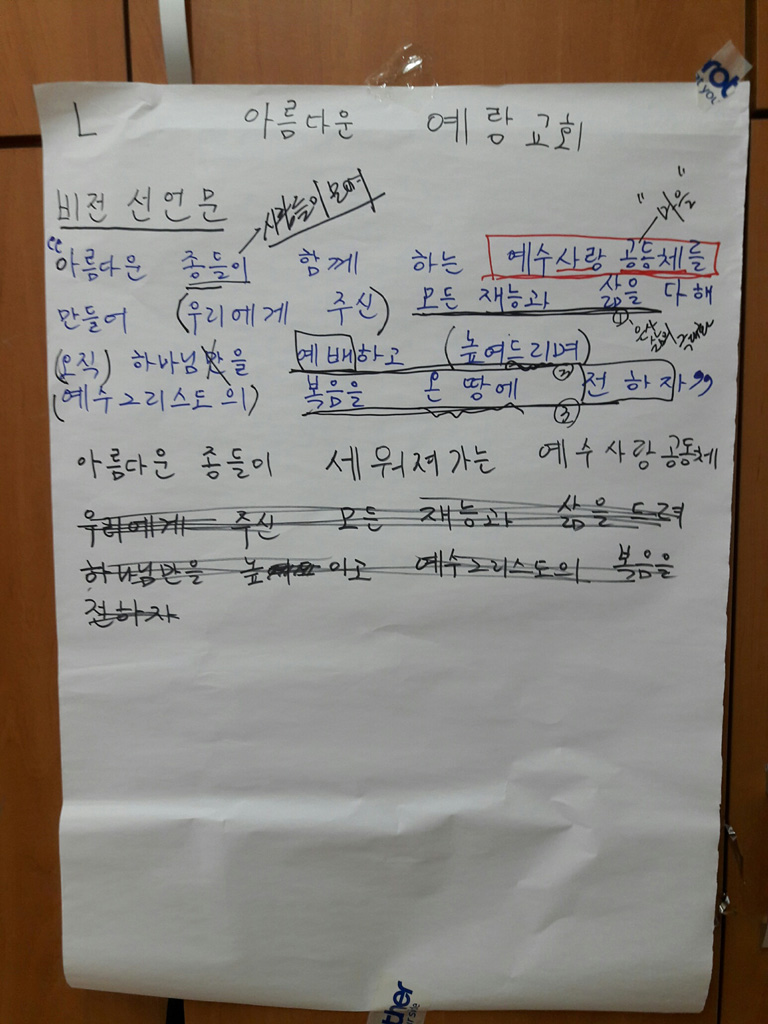 L 아름다운 예랑교회
비전 선언문
사람들이 모여
"마을"
"아름다운 종들이 함께 하는 예수사랑 공동체를
만들어 (우리에게 주신) 모든 재능과 삶을 다해
①
(오직) 하나님만을 예배하고 (높여드리며)
②
(예수그리스도의) 복음을 온 땅에 전하자"
③
아름다운 종들이 세워져가는 예수사랑공동체
우리에게 주신 모든 재능과 삶을 드려
하나님만을 높 이고 예수그리스도의 복음을
전하자